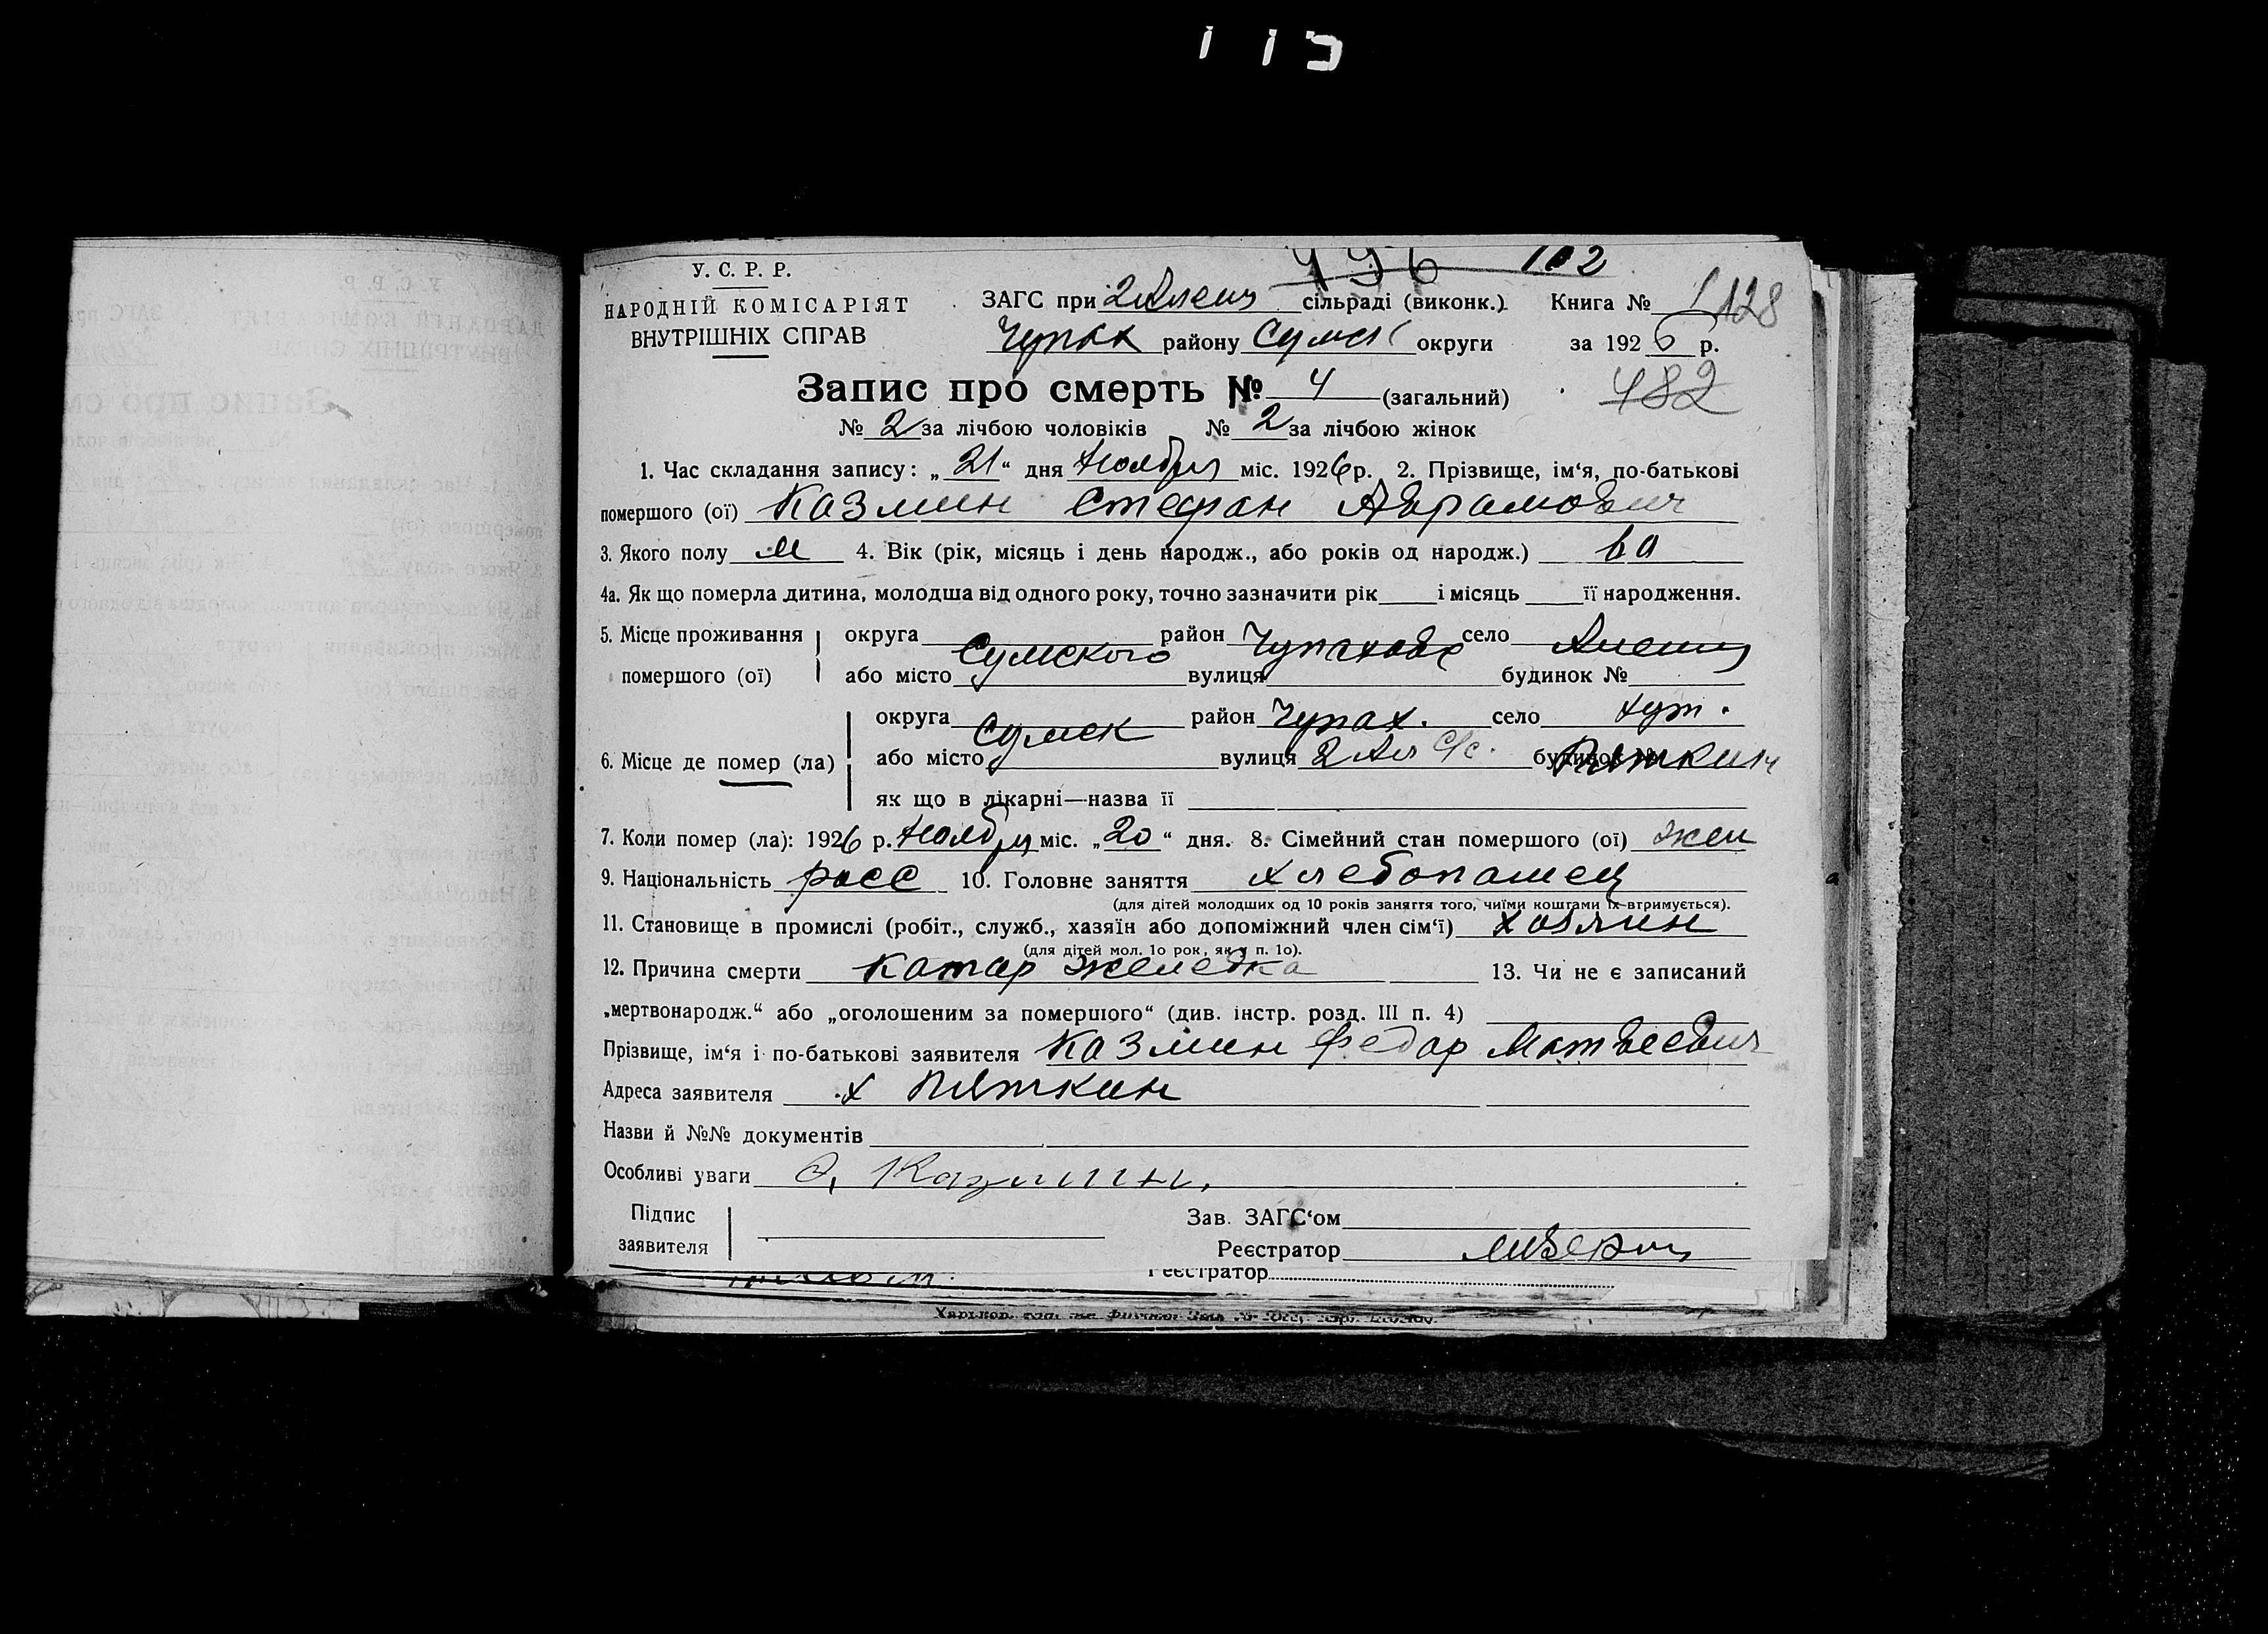 113
У. С. Р. Р.
НАРОДНІЙ КОМІСАРІЯТ
ВНУТРІШНІХ СПРАВ
496 102
ЗАГС при 2 Алеш сільраді (виконк.) Книга № 128
Чупах району Сумск округи за 1926 р.
482
Запис про смерть № 4 (загальний)
№ 2 за лічбою чоловіків № 2 за лічбою жінок
1. Час складання запису: „ 21 “ дня Ноября міс. 1926 р. 2. Прізвище, ім‘я, по-батькові
помершого (ої) Казмин Стефан Аврамович
3. Якого полу М 4. Вік (рік, місяць і день народж., або років од народж.) 60
4а. Як що померла дитина, молодша від одного року, точно зазначити рік і місяць її народження.
5. Місце проживання округа Сумского район Чупахов село Алешня
помершого (ої) або місто вулиця будинок №
округа Сумск район Чупах. село хут.
6. Місце де помер (ла) або місто вулиця 2 Ал с/с. будинок № Пяткин
як що в лікарні—назва її
7. Коли помер (ла): 1926 р. Ноября міс. „ 20 “ дня. 8. Сімейний стан помершого (ої) жен
9. Національність росс 10. Головне заняття хлебопашец
(для дітей молодших од 10 років заняття того, чиїми коштами їх втримується).
11. Становище в промислі (робіт., служб., хазяїн або допоміжний член сім‘ї) хозяин
(для дітей мол. 1о рок, як у п. 1о).
12. Причина смерти Катар желедка 13. Чи не є записаний
„мертвонародж.“ або „оголошеним за помершого“ (див. інстр. розд. III п. 4)
Прізвище, ім‘я і по-батькові заявителя Казмин Федор Матвеевич
Адреса заявителя х Пяткин
Назви й №№ документів
Особливі уваги Казмин.
Підпис
заявителя
Зав. ЗАГС‘ом
Реєстратор
Реєстратор